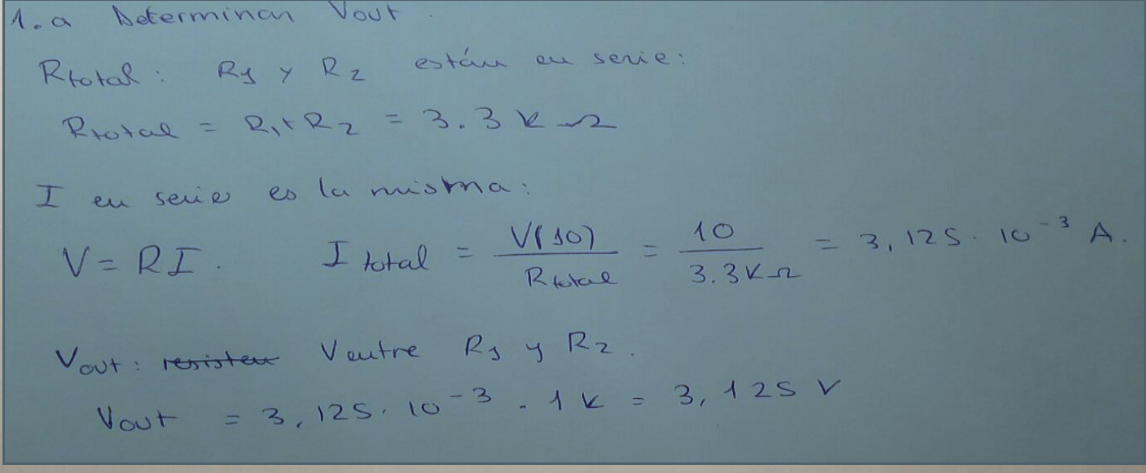 1.a Determinar Vout.
Rtotal: R1 y R2 están en serie:
Rtotal = R1+R2 = 3.3 kΩ
I en serie es la misma:
V=RI. I total = V(10) / Rtotal = 10 / 3.3KΩ = 3,125 · 10⁻³ A.
Vout: resisten Ventre R1 y R2.
Vout = 3,125 · 10⁻³ · 1k = 3,125 V